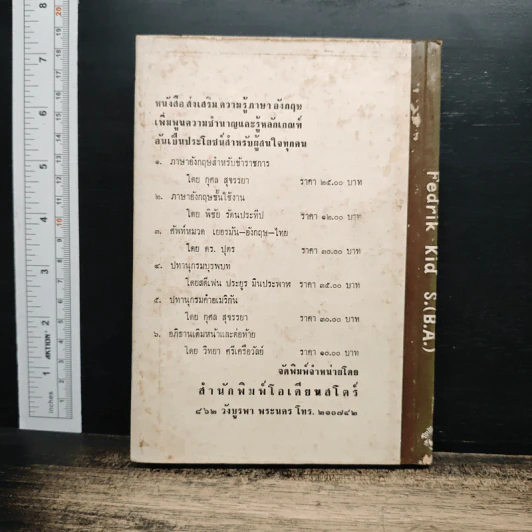 หนังสือ ส่งเสริม ความรู้ ภาษา อังกฤษ
เพิ่มพูนความชำนาญและรู้หลักเกณฑ์
อันเป็นประโยชน์สำหรับผู้สนใจทุกคน
๑. ภาษาอังกฤษสำหรับข้าราชการ
โดย กุศล สุจรรยา ราคา ๒๕.๐๐ บาท
๒. ภาษาอังกฤษขั้นใช้งาน
โดย พิชัย รัตนประทีป ราคา ๑๒.๐๐ บาท
๓. ศัพท์หมวด เยอรมัน–อังกฤษ–ไทย
โดย ดร. ปุตร ราคา ๓๐.๐๐ บาท
๔. ปทานุกรมบุรพบท
โดยสตีเฟน ประยูร มีนประพาฬ ราคา ๓๕.๐๐ บาท
๕. ปทานุกรมคำอเมริกัน
โดย กุศล สุจรรยา ราคา ๓๐.๐๐ บาท
๖. อภิธานเติมหน้าและต่อท้าย
โดย วิทยา ศรีเครือวัลย์ ราคา ๑๐.๐๐ บาท
จัดพิมพ์จำหน่ายโดย
สำนักพิมพ์โอเดียนสโตร์
๘๖๒ วังบูรพา พระนคร โทร. ๒๑๐๗๔๒
Fedrik Kid S.(B.A.)
ACTION
1
2
3
4
5
6
7
8
10
20